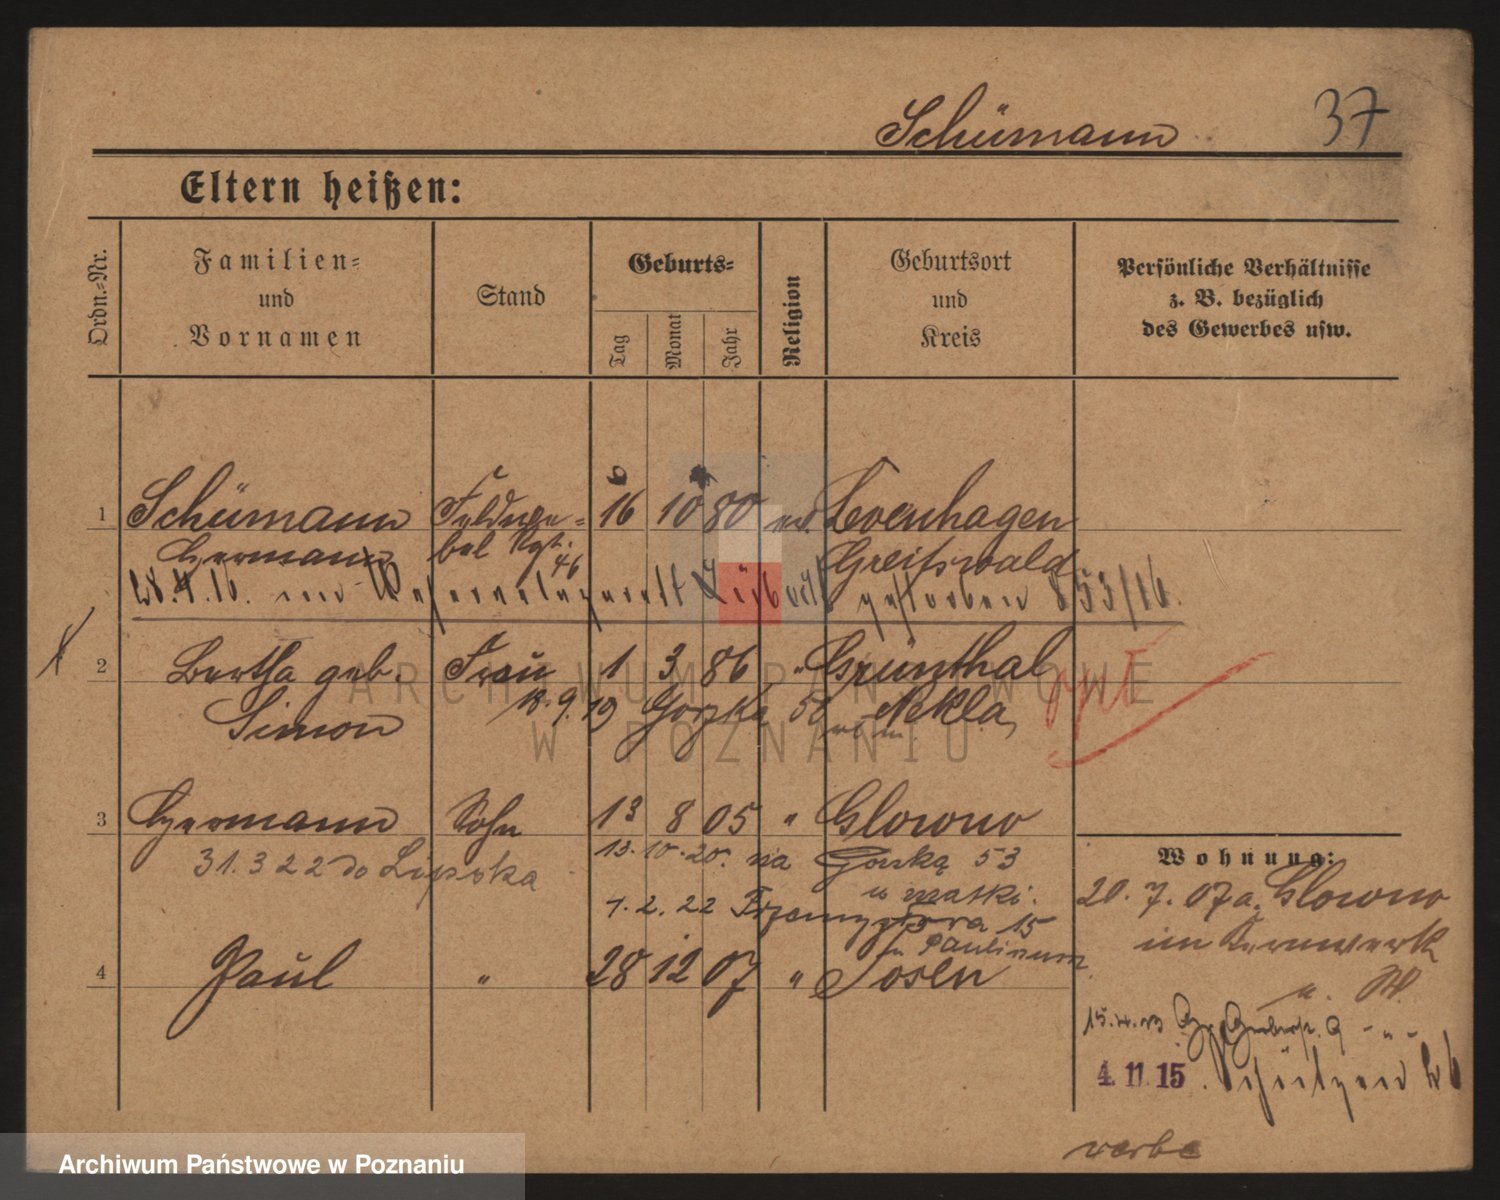 Schümann 37
Eltern heißen:
Ordn.-Nr.
Familien-
und
Vornamen
Stand
Geburts-
Tag
Monat
Jahr
Religion
Geburtsort
und
Kreis
Persönliche Verhältnisse
z. B. bezüglich
des Gewerbes usw.
1 Schümann Feldwe- 16 10 80 ev. Levenhagen
Hermann bel Rgt. 46 Greifswald
28.4.16. im gestorben 853/16.
2 Bertha geb. Frau 1 3 86 " Grünthal
Simon 18.9.19 Gorzka 58 Nekla
3 Hermann Sohn 13 8 05 " Glowno
31.3 22 do Lipska 13.10.20. na Gorską 53
u matki.
1.2.22 15
Paulinum
4 Paul " 28 12 07 " Posen
Wohnung:
20.7.07 a. Glowno
im Kernwerk
4.11.15. Schützen 26
ARCHIWUM PAŃSTWOWE
W POZNANIU
Archiwum Państwowe w Poznaniu